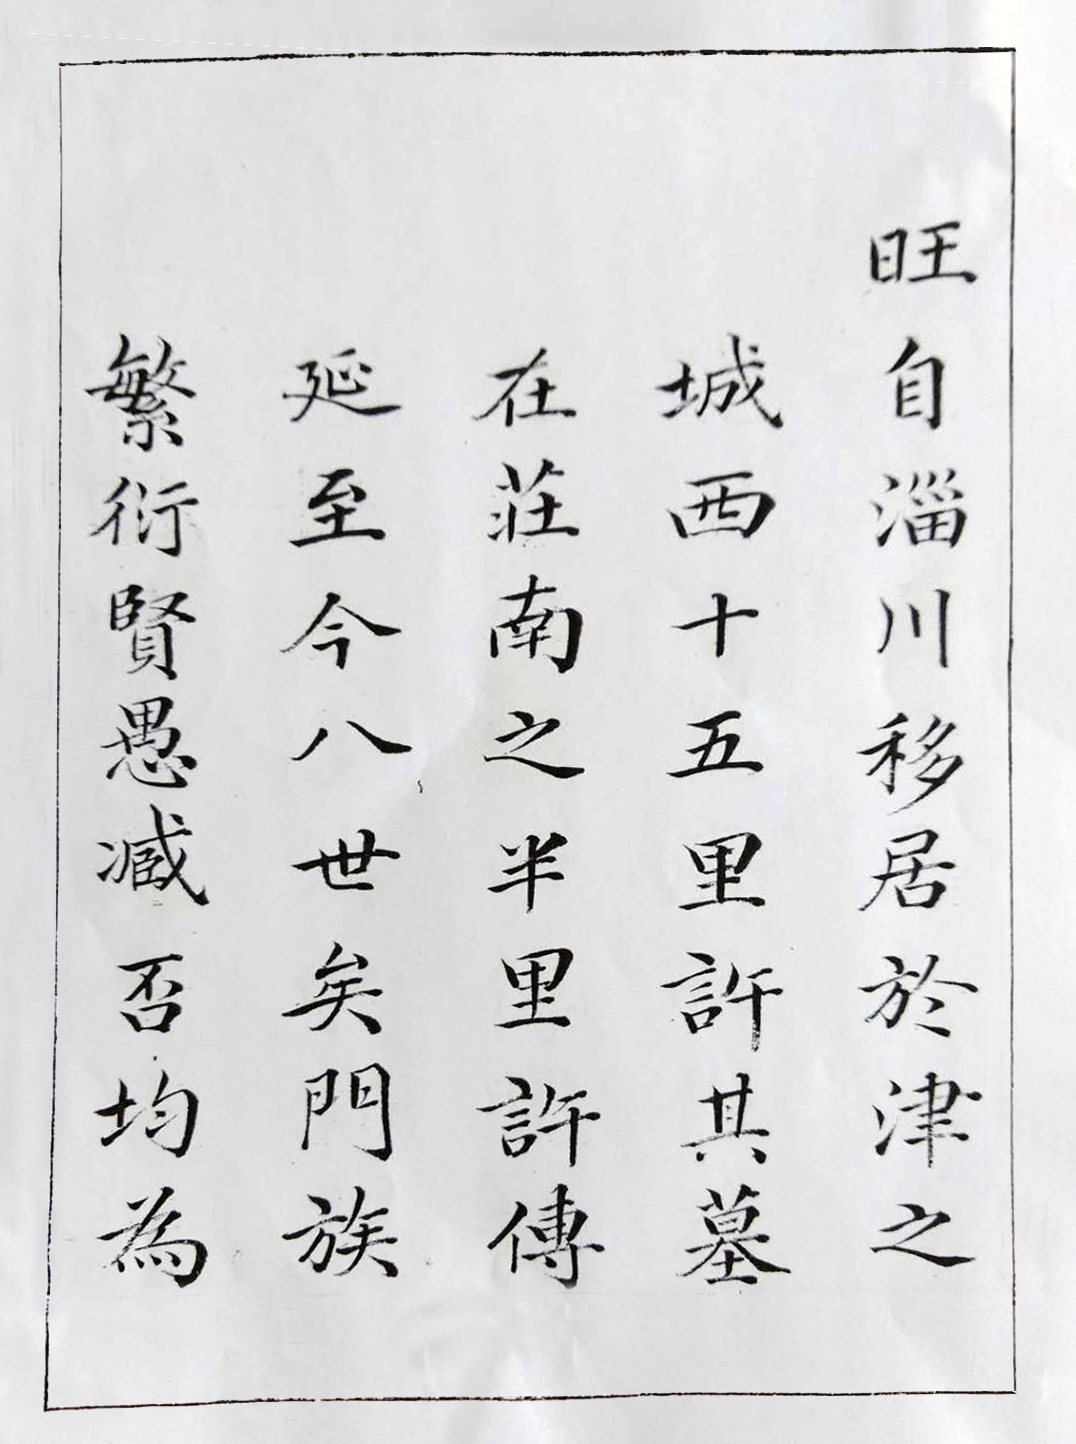 旺自淄川移居於津之
城西十五里許其墓
在莊南之半里許傳
延至今八世矣門族
繁衍賢愚臧否均為